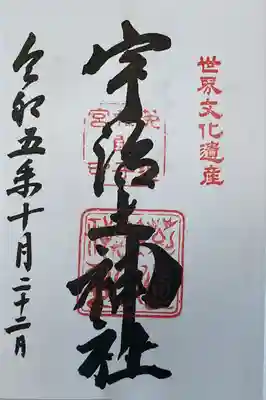 世界文化遺産
宇治上神社
令和五年十月二十二日